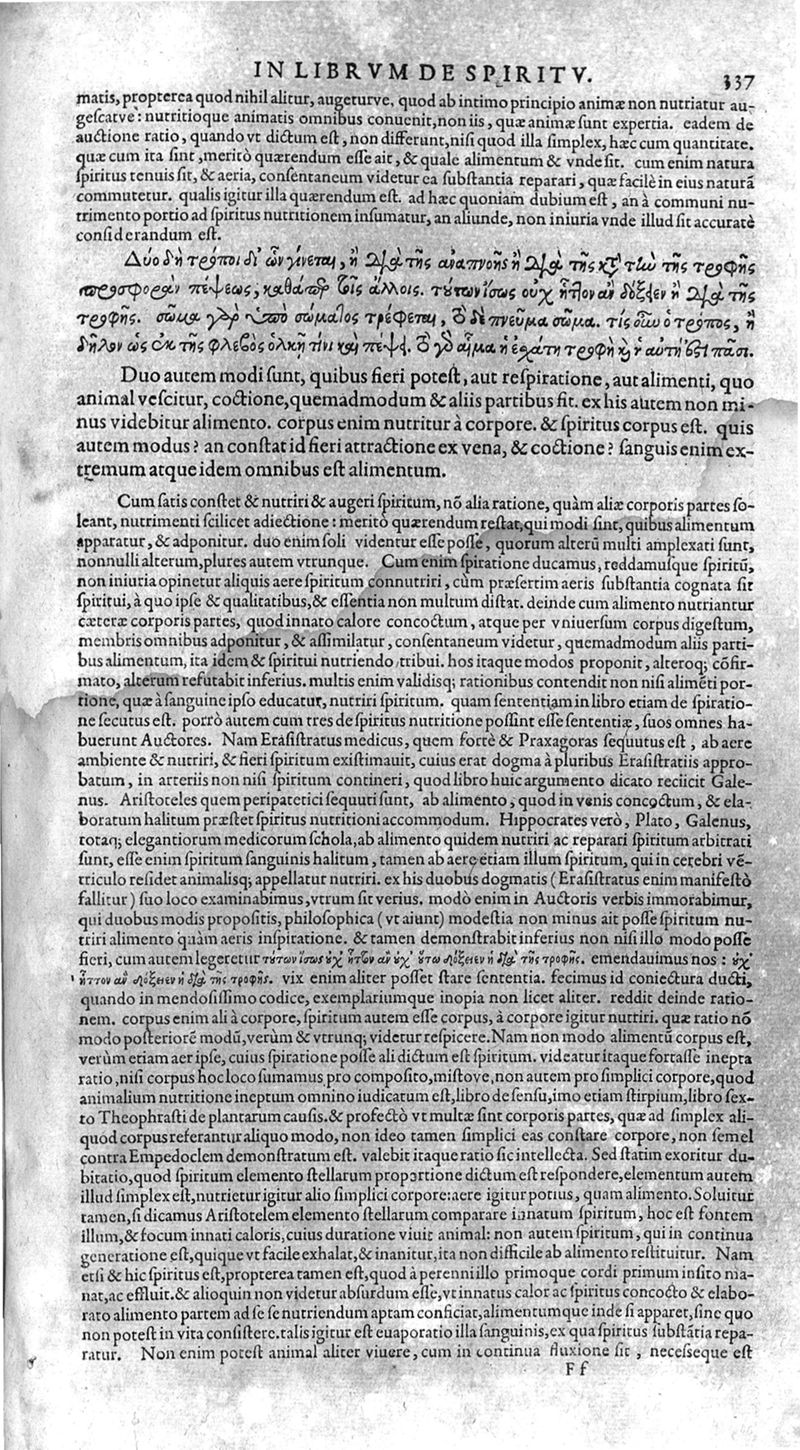 IN LIBRVM DE SPIRITV.
337
matis, propterea quod nihil alitur, augeturve, quod ab intimo principio animæ non nutriatur au-
gescatve: nutritioque animatis omnibus conuenit, non iis, quæ animæ sunt expertia. eadem de
auctione ratio, quando vt dictum est, non differunt, nisi quod illa simplex, hæc cum quantitate.
quæ cum ita sint, meritò quærendum esse ait, & quale alimentum & vnde sit. cum enim natura
spiritus tenuis sit, & aeria, consentaneum videtur ea substantia reparari, quæ facilè in eius naturā
commutetur. qualis igitur illa quærendum est. ad hæc quoniam dubium est, an à communi nu-
trimento portio ad spiritus nutritionem insumatur, an aliunde, non iniuria vnde illud sit accuratè
considerandum est.
Δύο δὴ τρόποι δι' ὧν γίνεται, ἢ διὰ τῆς ἀναπνοῆς ἢ διὰ τῆς κατὰ τὴν τῆς τροφῆς
προσφορὰν πέψεως, καθάπερ τοῖς ἄλλοις. τούτων ἴσως οὐχ ἧττον ἂν δόξειεν ἢ διὰ τῆς
τροφῆς. σῶμα γὰρ ὑπὸ σώματος τρέφεται, τὸ δὲ πνεῦμα σῶμα. τίς οὖν ὁ τρόπος, ἢ
δῆλον ὡς ἐκ τῆς φλεβὸς ὁλκῇ τινι καὶ πέψει. τὸ γὰρ αἷμα ἡ ἐχάτη τροφὴ καὶ ἡ αὐτὴ ἐστὶ πᾶσι.
Duo autem modi sunt, quibus fieri potest, aut respiratione, aut alimenti, quo
animal vescitur, coctione, quemadmodum & aliis partibus fit. ex his autem non mi-
nus videbitur alimento. corpus enim nutritur à corpore. & spiritus corpus est. quis
autem modus? an constat id fieri attractione ex vena, & coctione? sanguis enim ex-
tremum atque idem omnibus est alimentum.
Cum satis constet & nutriri & augeri spiritum, nō alia ratione, quàm aliæ corporis partes so-
leant, nutrimenti scilicet adiectione: meritò quærendum restat, qui modi sint, quibus alimentum
apparatur, & adponitur. duo enim soli videntur esse posse, quorum alterū multi amplexati sunt,
nonnulli alterum, plures autem vtrunque. Cum enim spiratione ducamus, reddamusque spiritū,
non iniuria opinetur aliquis aere spiritum connutriri, cùm præsertim aeris substantia cognata sit
spiritui, à quo ipse & qualitatibus, & essentia non multum distat. deinde cum alimento nutriantur
cæteræ corporis partes, quod innato calore concoctum, atque per vniuersum corpus digestum,
membris omnibus adponitur, & assimilatur, consentaneum videtur, quemadmodum aliis parti-
bus alimentum, ita idem & spiritui nutriendo tribui. hos itaque modos proponit, alteroq; cōfir-
mato, alterum refutabit inferius. multis enim validisq; rationibus contendit non nisi alimēti por-
tione, quæ à sanguine ipso educatur, nutriri spiritum. quam sententiam in libro etiam de spiratio-
ne secutus est. porrò autem cum tres de spiritus nutritione possint esse sententiæ, suos omnes ha-
buerunt Auctores. Nam Erasistratus medicus, quem fortè & Praxagoras sequutus est, ab aere
ambiente & nutriri, & fieri spiritum existimauit, cuius erat dogma à pluribus Erasistratiis appro-
batum, in arteriis non nisi spiritum contineri, quod libro huic argumento dicato reiicit Gale-
nus. Aristoteles quem peripatetici sequuti sunt, ab alimento, quod in venis concoctum, & ela-
boratum halitum præstet spiritus nutritioni accommodum. Hippocrates verò, Plato, Galenus,
totaq; elegantiorum medicorum schola, ab alimento quidem nutriri ac reparari spiritum arbitrati
sunt, esse enim spiritum sanguinis halitum, tamen ab aere etiam illum spiritum, qui in cerebri vē-
triculo residet animalisq; appellatur nutriri. ex his duobus dogmatis (Erasistratus enim manifestò
fallitur) suo loco examinabimus, vtrum sit verius. modò enim in Auctoris verbis immorabimur,
qui duobus modis propositis, philosophica (vt aiunt) modestia non minus ait posse spiritum nu-
triri alimento quàm aeris inspiratione. & tamen demonstrabit inferius non nisi illo modo posse
fieri, cum autem legeretur τούτων ἴσως οὐχ ἧττον ἂν οὐχ' οὕτω δόξειεν ἢ διὰ τῆς τροφῆς. emendauimus nos: οὐχ'
ἧττον ἂν δόξειεν ἢ διὰ τῆς τροφῆς. vix enim aliter posset stare sententia. fecimus id coniectura ducti,
quando in mendosissimo codice, exemplariumque inopia non licet aliter. reddit deinde ratio-
nem. corpus enim ali à corpore, spiritum autem esse corpus, à corpore igitur nutriri. quæ ratio nō
modo posteriorē modū, verùm & vtrunq; videtur respicere. Nam non modo alimentū corpus est,
verùm etiam aer ipse, cuius spiratione posse ali dictum est spiritum. videatur itaque fortasse inepta
ratio, nisi corpus hoc loco sumamus pro composito, mistove, non autem pro simplici corpore, quod
animalium nutritione ineptum omnino iudicatum est, libro de sensu, imo etiam stirpium, libro sex-
to Theophrasti de plantarum causis. & profectò vt multæ sint corporis partes, quæ ad simplex ali-
quod corpus referantur aliquo modo, non ideo tamen simplici eas constare corpore, non semel
contra Empedoclem demonstratum est. valebit itaque ratio sic intellecta. Sed statim exoritur du-
bitatio, quod spiritum elemento stellarum proportione dictum est respondere, elementum autem
illud simplex est, nutrietur igitur alio simplici corpore: aere igitur potius, quam alimento. Soluitur
tamen, si dicamus Aristotelem elemento stellarum comparare innatum spiritum, hoc est fontem
illum, & focum innati caloris, cuius duratione viuit animal: non autem spiritum, qui in continua
generatione est, quique vt facile exhalat, & inanitur, ita non difficile ab alimento restituitur. Nam
etsi & hic spiritus est, propterea tamen est, quod à perenni illo primoque cordi primum insito ma-
nat, ac effluit. & alioquin non videtur absurdum esse, vt innatus calor ac spiritus concocto & elabo-
rato alimento partem ad se se nutriendum aptam conficiat, alimentumque inde si apparet, sine quo
non potest in vita consistere. talis igitur est euaporatio illa sanguinis, ex qua spiritus substātia repa-
ratur. Non enim potest animal aliter viuere, cum in continua fluxione sit, necesseque est
F f